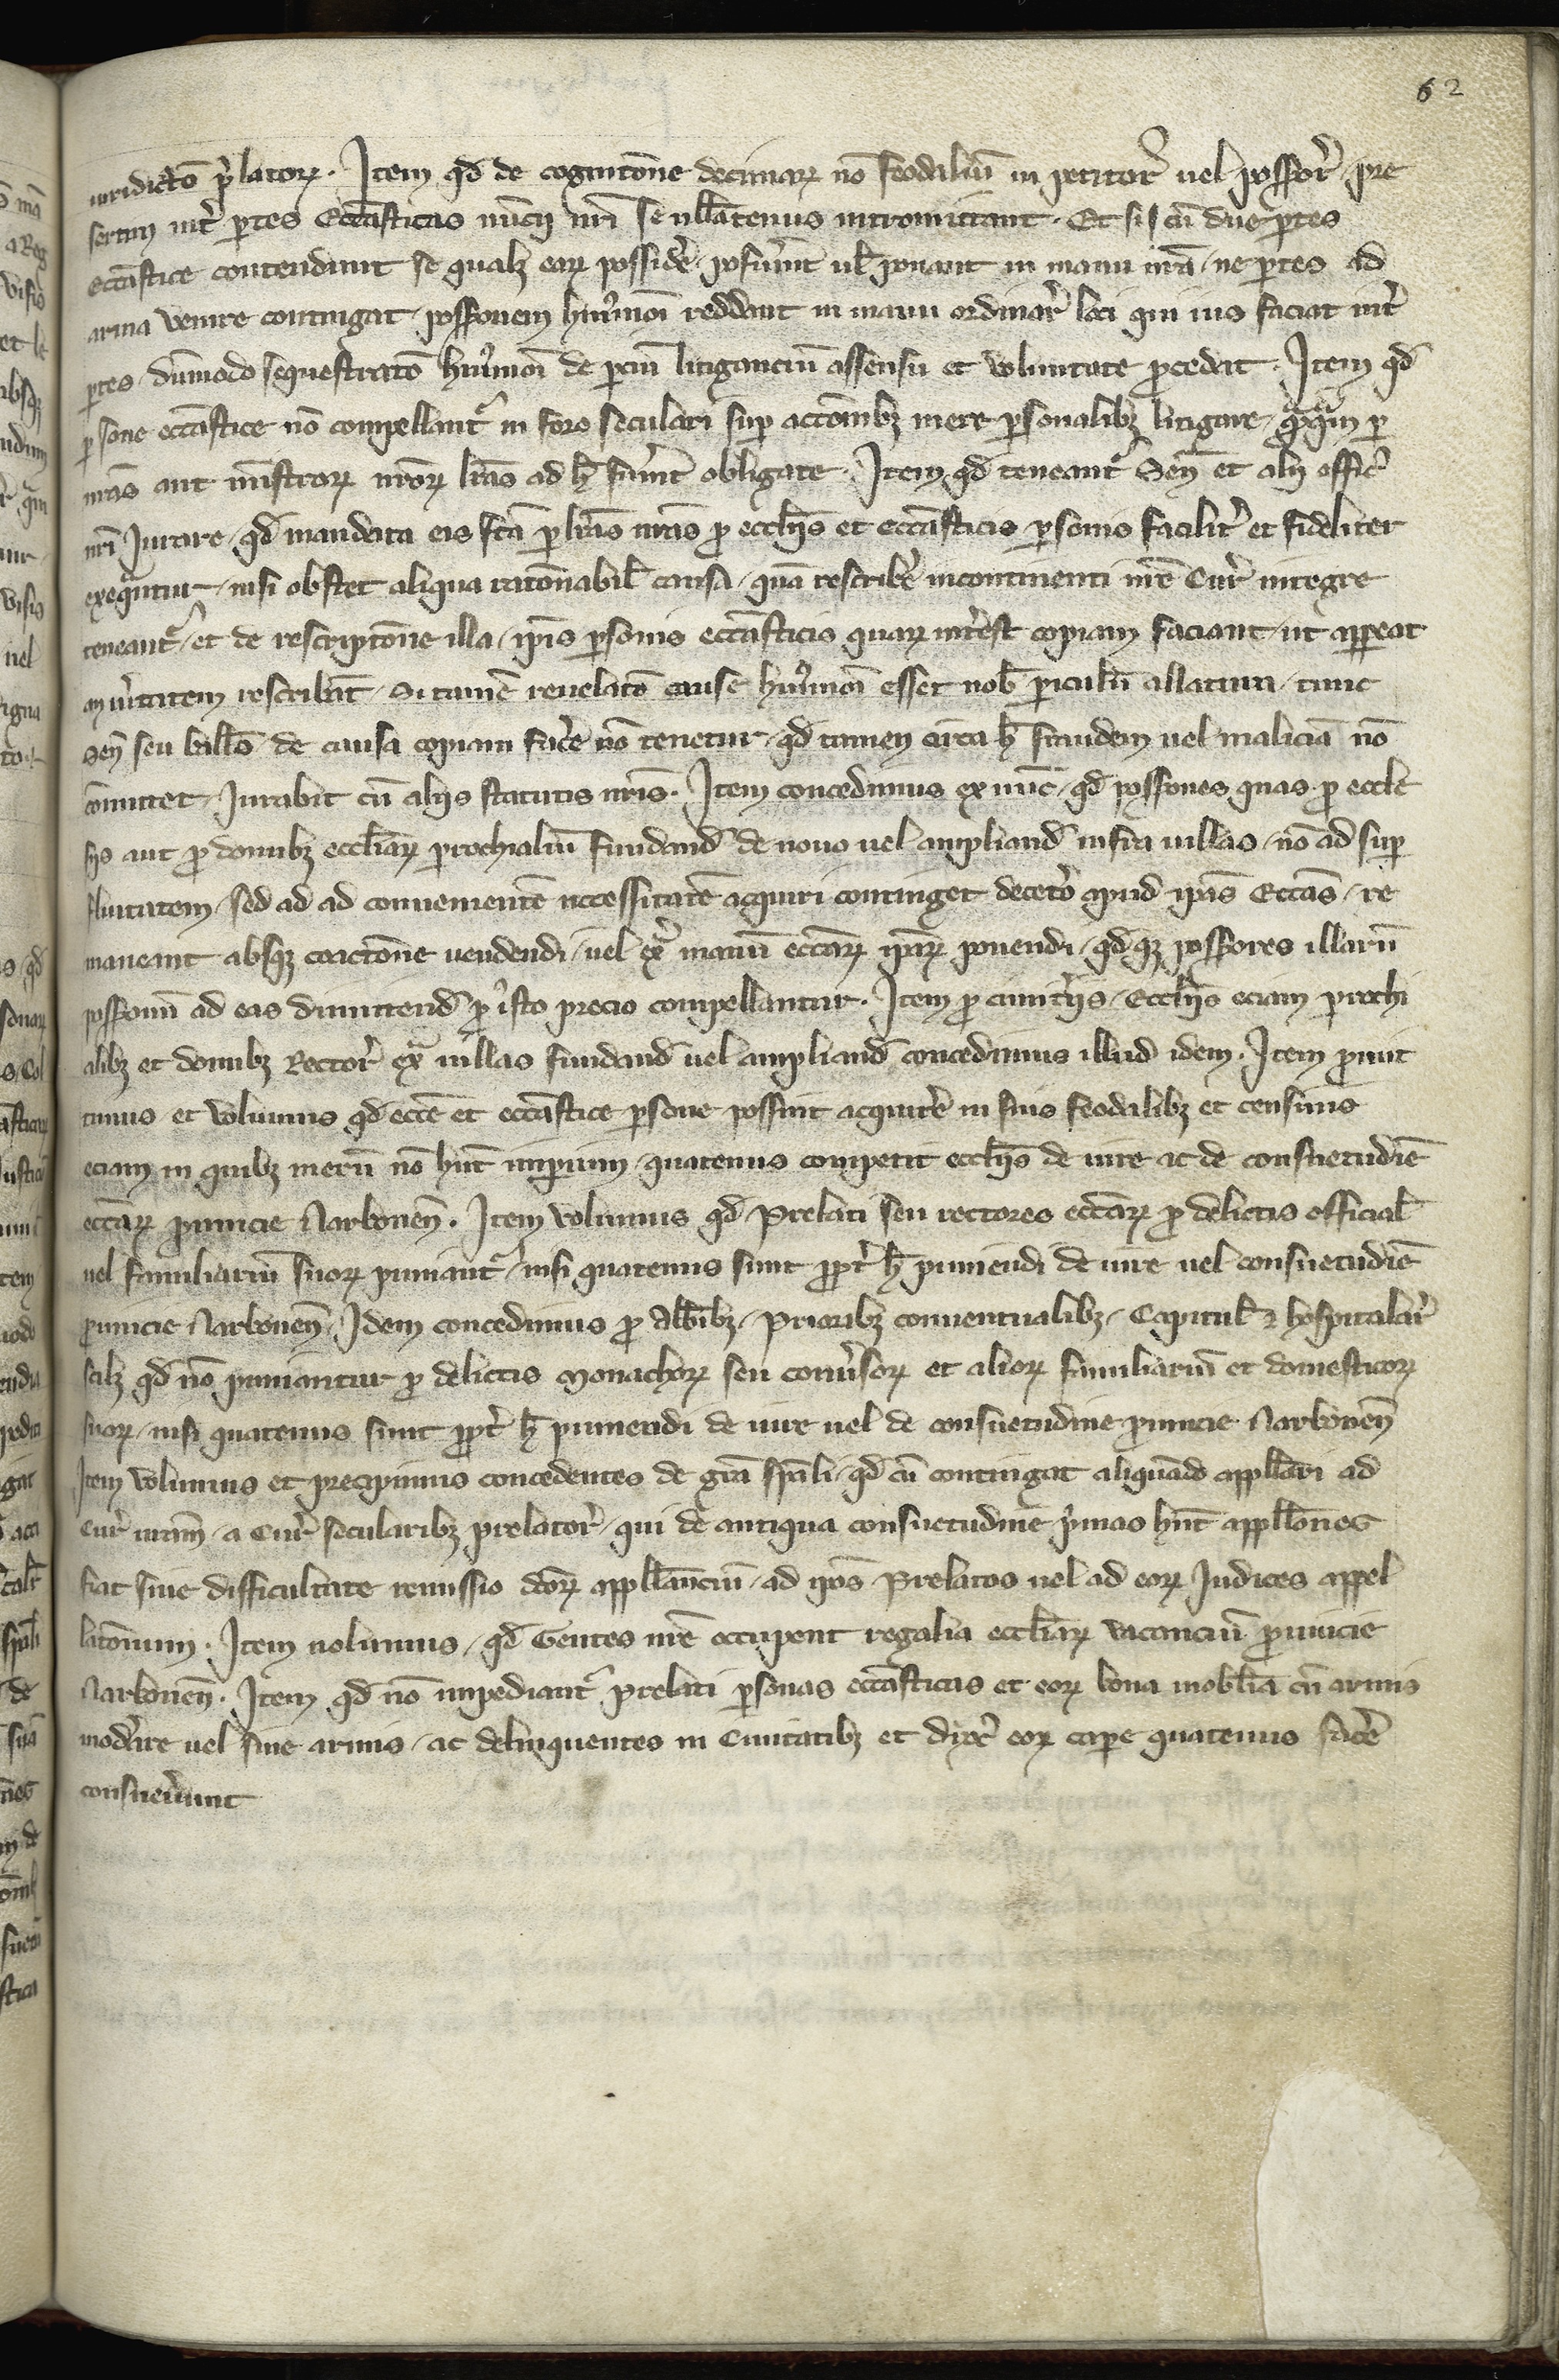 62
iuridictõ p̃latoꝝ. Item qđ de cognitõne decimaꝝ nõ feodaliũ in petitor̃ uel possor̃ pre
sertim int̃ ꝑtes Eccãsticas nuncij nr̃i se ullatenus intromittant. Et si cũ due ꝑtes
eccãstice contendunt se qualꝫ eaꝝ possidẽ posuerint ul̃ ponant in manu nr̃a ne ꝑtes ad
arma venire contingat possonem huiusmõi reddant in manu ordinar̃ loci qui ius faciat int̃
ꝑtes dũmodo sequestratõ huiusmõi de ꝑciũ litiganciũ assensu et voluntate ꝓcedat. Item qđ
ꝑsone eccãstice nõ compellant᷑ in foro seculari suꝑ accõnibꝫ mere ꝑsonalibꝫ litigare ꝑ
nr̃as aut ministroꝝ nr̃oꝝ lr̃as ad h̃ fuerint obligate. Item qđ teneant᷑ Señ et alij offic̃
nr̃i Iurare qđ mandata eis fc̃a ꝑ lr̃as nr̃as ꝓ eccl̃ijs et eccãsticis ꝑsonis facilit̃ et fideliter
exequntur nisi obstet aliqua ratõnabil̃ causa quã rescribẽ incontinenti nr̃e Cur̃ integre
teneant᷑ et de rescriptõne illa ip̃is ꝑsonis eccãsticis quaꝝ int̃est copiam faciant ut appeat
an ũitatem rescribãt. Si tamẽ reuelatõ cause huiusmõi esset nob̃ ꝑiculũ allatura tunc
Señ seu baill̃o de causa copiam facẽ nõ tenetur qđ tamen circa h̃ fraudem uel maliciã nõ
cõmittet iurabit cũ alijs statutis nr̃is. Item concedimus ex nũc qđ possones quas ꝓ eccle
sijs aut ꝓ domibꝫ eccl̃iaꝝ ꝑrochialiũ fundand̃ de nouo uel ampliand̃ infra uillas nõ ad suꝑ
fluitatem sed ad ad conuenientẽ necessitatẽ acquiri continget deceto apud ip̃as Eccãs re
maneant absqꝫ coactõne uendendi uel ex̃ manũ eccãꝝ ip̃aꝝ ponendi qđqꝫ possores illarũ
possonũ ad eas dimittend̃ ꝓ isto precio compellantur. Item ꝓ cimit̃ijs Eccl̃ijs eciam ꝑrochi
alibꝫ et domibꝫ Rector̃ ex̃ uillas fundand̃ uel ampliand̃ concedimus illud idem. Item ꝓmit
timus et volumus qđ eccẽ et eccãstice ꝑsone possint acquirẽ in suis feodalibꝫ et censiuis
eciam in quibꝫ merũ nõ hñt imperium quatenus competit eccl̃ijs de iure ac de consuetudiẽ
eccãꝝ ꝓuincie Narboneñ. Item volumus qđ Prelati seu rectores eccãꝝ ꝓ delictis official̃
uel familiariũ suoꝝ puniant᷑ nisi quatenus sunt ꝓpt̃ h̃ puniendi de iure uel consuetudiẽ
ꝓuincie Narboneñ. Idem concedimus ꝓ Abb̃ibꝫ Prioribꝫ conuentualibꝫ Capitul̃ ⁊ hospitalar̃
scilꝫ qđ nõ puniantur ꝓ delictis Monachoꝝ seu conũsoꝝ et alioꝝ familiariũ et domesticoꝝ
suoꝝ nisi quatenus sunt ꝓpt̃ h̃ puniendi de iure uel de consuetudine ꝓuincie Narboneñ
Item volumus et precipimus concedentes de gr̃a sp̃ali qđ cũ contingat aliquãdo appll̃ari ad
Cur̃ nr̃am a Cur̃ secularibꝫ prelator̃ qui de antiqua consuetudine p̃mas hñt appll̃ones
fiat sine difficultate remissio dc̃oꝝ appll̃anciũ ad ip̃os Prelatos uel ad eoꝝ Iudices appel
latõnum. Item nolumus qđ Gentes nr̃e occupent regalia eccl̃iaꝝ vacanciũ ꝓuincie
Narboneñ. Item qđ nõ impediant᷑ Prelati ꝑsonas eccãsticas et eoꝝ bona mobl̃ia cũ armis
modẽre uel sine armis ac delinquentes in Ciuitatibꝫ et dyoc̃ eoꝝ cape quatenus facẽ
consueuerunt